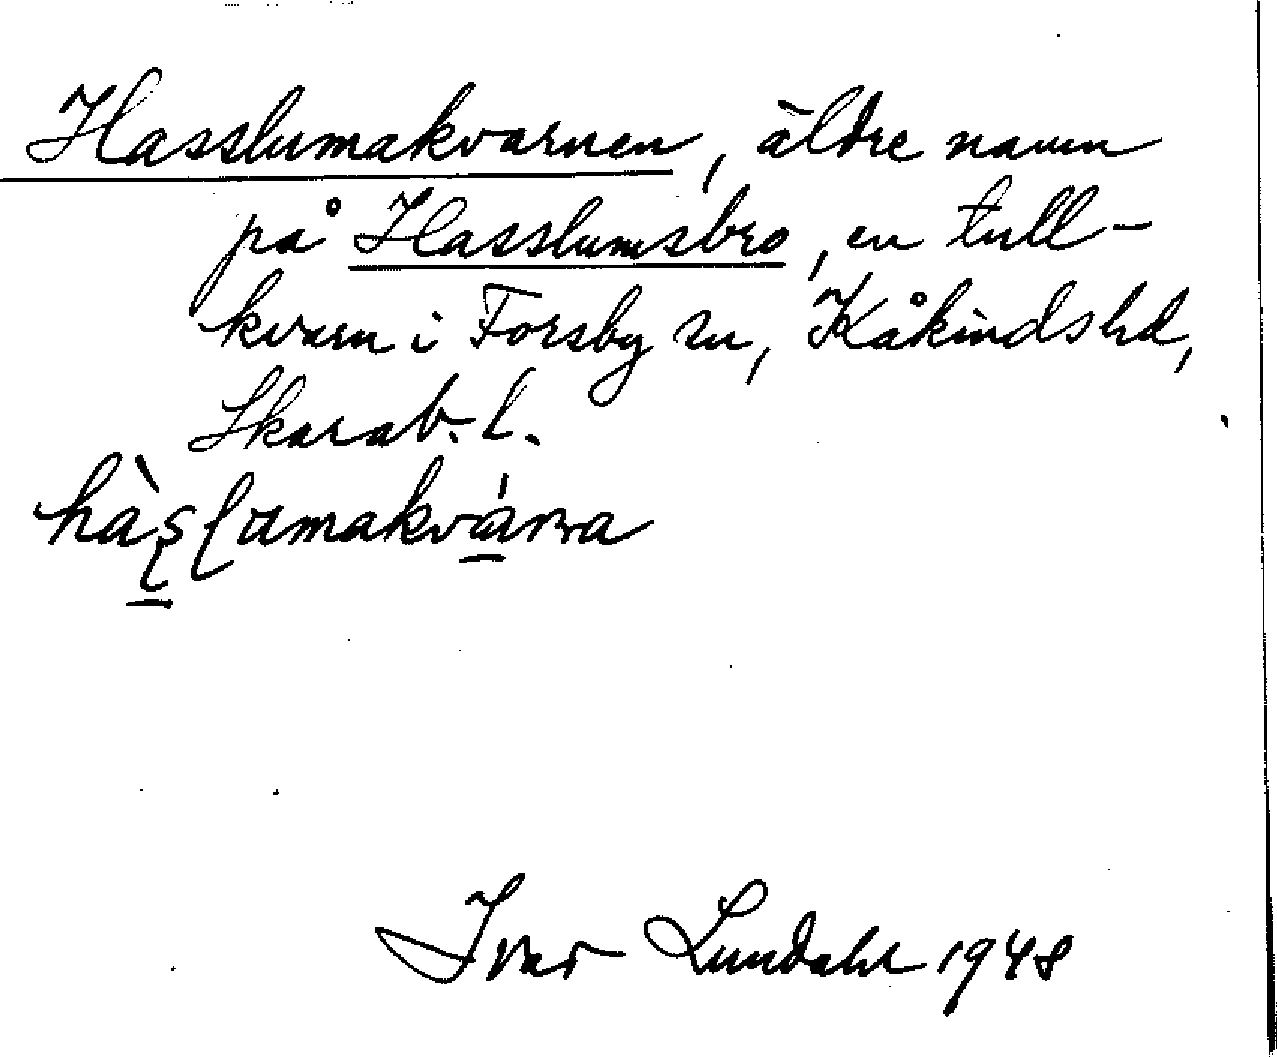 Hasslumakvarnen, äldre namn
på Hasslumsbro, en tull-
kvarn i Forsby sn, Kåkinds hd,
Skarab. l.
Ivar Lundahl 1948